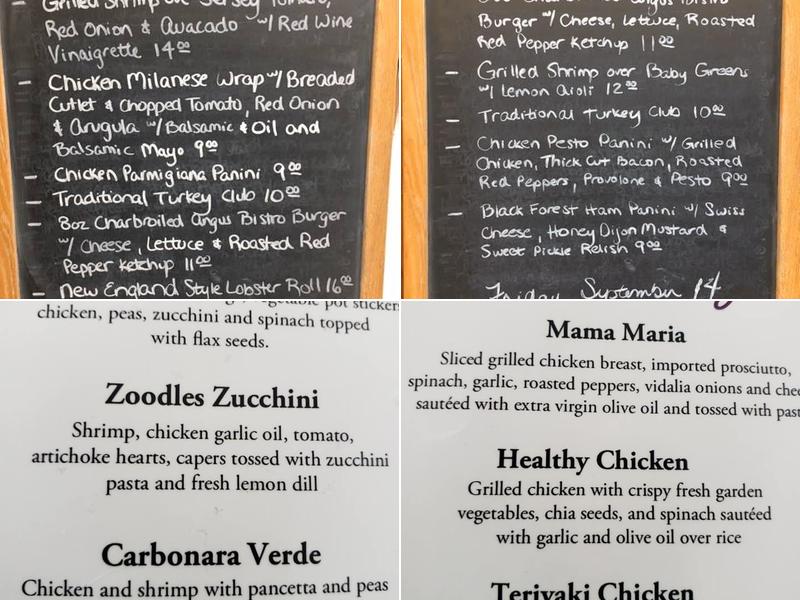 Grilled Shrimp over Jersey Tomato,
Red Onion & Avacado w/ Red Wine
Vinaigrette 14.00
- Chicken Milanese Wrap w/ Breaded
Cutlet & Chopped Tomato, Red Onion
& Arugula w/ Balsamic & Oil and
Balsamic Mayo 9.00
- Chicken Parmigiana Panini 9.00
- Traditional Turkey Club 10.00
- 8oz Charbroiled Angus Bistro Burger
w/ Cheese, Lettuce & Roasted Red
Pepper Ketchup 11.00
- New England Style Lobster Roll 16.00
Burger w/ Cheese, Lettuce, Roasted
Red Pepper Ketchup 11.00
- Grilled Shrimp over Baby Greens
w/ Lemon Aioli 12.00
- Traditional Turkey Club 10.00
- Chicken Pesto Panini w/ Grilled
Chicken, Thick Cut Bacon, Roasted
Red Peppers, Provolone & Pesto 9.00
- Black Forest Ham Panini w/ Swiss
Cheese, Honey Dijon Mustard &
Sweet Pickle Relish 9.00
Friday September 14
vegetable pot stickers
chicken, peas, zucchini and spinach topped
with flax seeds.
Zoodles Zucchini
Shrimp, chicken garlic oil, tomato,
artichoke hearts, capers tossed with zucchini
pasta and fresh lemon dill
Carbonara Verde
Chicken and shrimp with pancetta and peas
Mama Maria
Sliced grilled chicken breast, imported prosciutto,
spinach, garlic, roasted peppers, vidalia onions and chee
sautéed with extra virgin olive oil and tossed with past
Healthy Chicken
Grilled chicken with crispy fresh garden
vegetables, chia seeds, and spinach sautéed
with garlic and olive oil over rice
Teriyaki Chicken